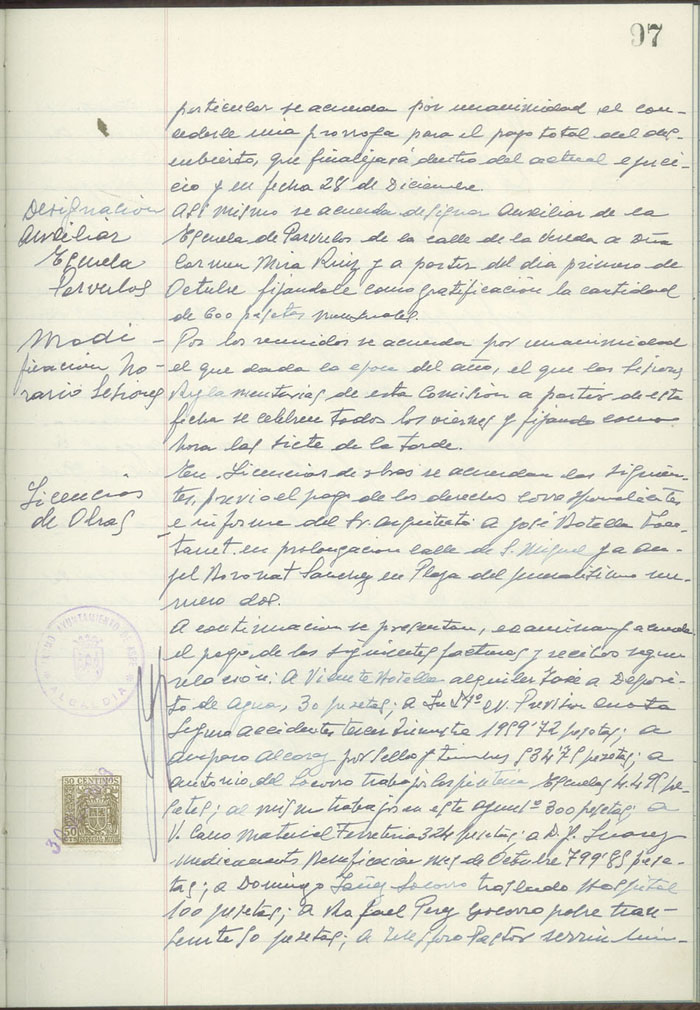 97
particular se acuerda por unanimidad el con-
cederle una prorroga para el pago total del des-
cubierto, que finalizará dentro del actual ejerci-
cio y en fecha 28 de Diciembre.
Designación
Auxiliar
Escuela
Parvulos
Asi mismo se acuerda designar Auxiliar de la
Escuela de Parvulos de la calle de la Vereda a Dña
Carmen Mira Ruiz y a partir del dia primero de
Octubre fijandole como gratificación la cantidad
de 600 pesetas mensuales.
Modi-
ficacion ho-
rario Sesiones
Por los reunidos se acuerda por unanimidad
el que dada la epoca del año, el que las Sesiones
Reglamentarias de esta Comisión a partir de esta
fecha se celebren todos los viernes y fijando como
hora las siete de la tarde.
Licencias
de Obras
En Licencias de obras se acuerdan las siguien-
tes, previo el pago de los derechos correspondientes
e informe del Sr. Arquitecto A José Botella
en prolongacion calle de S. Miguel y a An-
gel Boronat Sanchez en Plaza del Generalisimo nu-
mero dos.
A continuacion se presentan, examinan y acuerda
el pago de las siguientes facturas y recibos segun
relación: A Vicente Botella alquiler Deposi-
to de Agua, 30 pesetas; a N. Prevision cuota
Seguro accidentes tercer trimestre 1959 72 pesetas; a
Amparo Alcaraz por sello y timbres 534'75 pesetas; a
Antonio del Socorro trabajos Escuelas 4.495 pe-
setas; al mismo trabajos en este Ayunt.º 300 pesetas; a
V. Cano Material Ferreteria 324 pesetas; a D. J. Suarez
medicamentos Beneficacion mes de Octubre 799'85 pese-
tas; a Domingo Yañez Socorro traslado Hospital
100 pesetas; a Rafael Perez Socorro pobre tran-
seunte 50 pesetas; a Telesforo Pastor
AYUNTAMIENTO DE
ALCALDIA
50 CENTIMOS
50